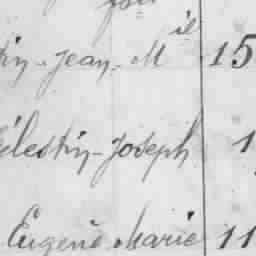 Jean M il 15
élestin-Joseph 1
Eugène Marie 11